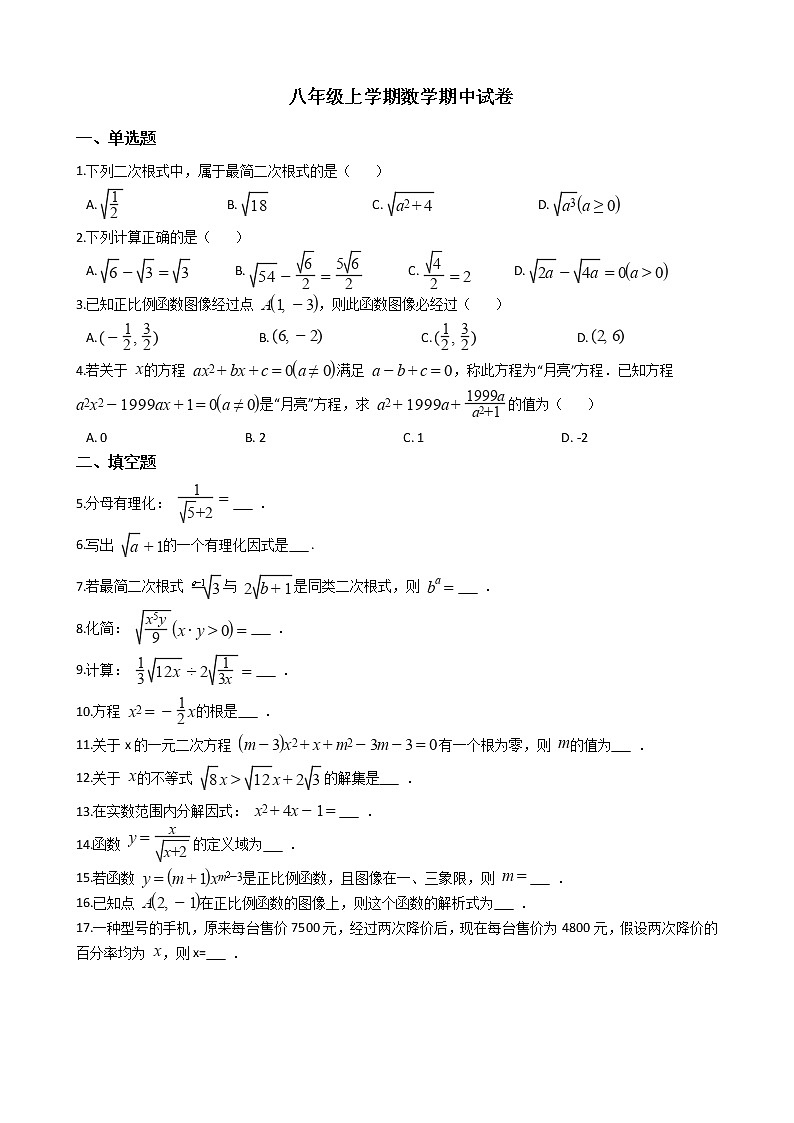 八年级上学期数学期中试卷
一、单选题
1.下列二次根式中，属于最简二次根式的是（　　）
A. √(1/2)　B. √18　C. √(a²+4)　D. √(a³)(a≥0)
2.下列计算正确的是（　　）
A. √6－√3＝√3　B. √54－√6/2＝5√6/2　C. √4/2＝2　D. √(2a)－√(4a)＝0(a>0)
3.已知正比例函数图像经过点 A(1，－3)，则此函数图像必经过（　　）
A. (－1/2, 3/2)　B. (6, －2)　C. (1/2, 3/2)　D. (2, 6)
4.若关于 x的方程 ax²+bx+c＝0(a≠0)满足 a－b+c＝0，称此方程为“月亮”方程．已知方程
a²x²－1999ax+1＝0(a≠0)是“月亮”方程，求 a²+1999a+1999a/(a²+1)的值为（　　）
A. 0　B. 2　C. 1　D. -2
二、填空题
5.分母有理化： 1/(√5+2)＝___ ．
6.写出 √a+1的一个有理化因式是___．
7.若最简二次根式 ᵃ⁻¹√3与 2√(b+1)是同类二次根式，则 bᵃ＝___ ．
8.化简： √(x⁵y/9)(x·y>0)＝___ ．
9.计算： 1/3√(12x)÷2√(1/(3x))＝___ ．
10.方程 x²＝－1/2x的根是___ ．
11.关于 x的一元二次方程 (m－3)x²+x+m²－3m－3＝0有一个根为零，则 m的值为___ ．
12.关于 x的不等式 √8x>√12x+2√3的解集是___ ．
13.在实数范围内分解因式： x²+4x－1＝___ ．
14.函数 y＝x/√(x+2)的定义域为___ ．
15.若函数 y＝(m+1)x^(m²－3)是正比例函数，且图像在一、三象限，则 m＝___ ．
16.已知点 A(2，－1)在正比例函数的图像上，则这个函数的解析式为___ ．
17.一种型号的手机，原来每台售价 7500 元，经过两次降价后，现在每台售价为 4800 元，假设两次降价的
百分率均为 x，则 x=___ ．